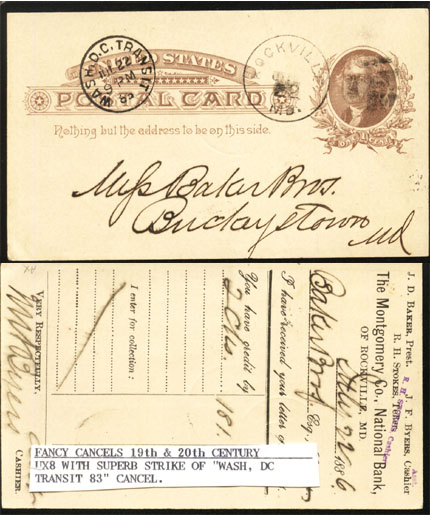 WASH. D.C. TRANSIT
9 PM
UNITED STATES
POSTAL CARD
Nothing but the address to be on this side.
ROCKVILLE
MD.
Mess Baker Bros.
Buckeystown
Md
J. D. BAKER, Prest.
J. F. BYERS, Cashier
R. H. STOKES, Teller
The Montgomery Co., National Bank,
OF ROCKVILLE, MD.
188 6
Baker Bros Esq.,
I have received your letter of
You have credit by
2 Cks.
181.
I enter for collection :
VERY RESPECTFULLY,
CASHIER.
FANCY CANCELS 19th & 20th CENTURY
UX8 WITH SUPERB STRIKE OF "WASH, DC
TRANSIT 83" CANCEL.